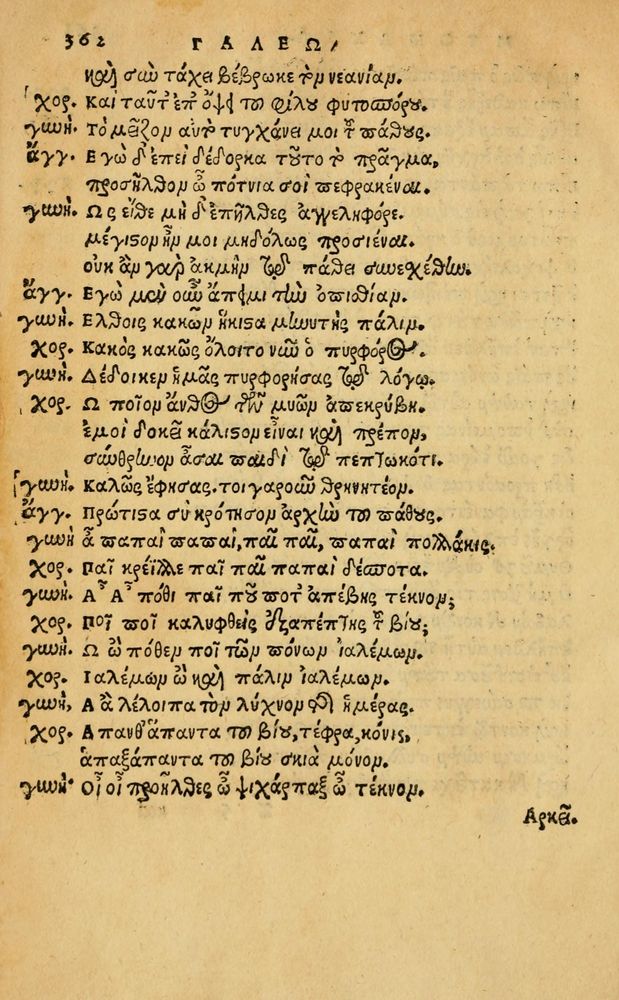 362 ΓΑΛΕΩ/
καὶ σὺν τάχει βέβρωκε τὸν νεανίαν.
χορ. Καὶ ταῦτ' ἐπ' ὄψει τοῦ φίλου φυτοσπόρου.
γυνὴ. Τὸ μεῖζον αὐτὸ τυγχάνει μοι τοῦ πάθους.
ἄγγ. Εγὼ δ' ἐπεὶ δέδορκα τοῦτο τὸ πρᾶγμα,
προσῆλθον ὦ πότνια σοὶ πεφρακέναι.
γυνὴ. Ως εἴθε μὴ δ' ἐπῆλθες ἀγγεληφόρε.
μέγιστον ἦν μοι μηδόλως προσιέναι.
οὐκ ἂν γαρ ἀκμὴν τῷ πάθει συνεχέθην.
ἄγγ. Εγὼ μὲν οὖν ἄπειμι τὴν ὀπισθίαν.
γυνὴ. Ελθοις κακῶν ἥκιστα μηνυτὴς πάλιν.
χορ. Κακὸς κακῶς ὄλοιτο νῦν ὁ πυρφόρος.
γυνὴ. Δέδοικεν ἡμᾶς πυρφορήσας τῷ λόγῳ.
χορ. Ω ποῖον ἄνθος τῶν μυῶν ἀπεκρύβη.
ἐμοὶ δοκεῖ κάλιστον εἶναι καὶ πρέπον,
σύνθρηνον ᾆσαι παιδὶ τῷ πεπτωκότι.
γυνὴ. Καλῶς ἔφησας. τοιγαροῦν θρηνητέον.
ἄγγ. Πρώτιστα σὺ κρότησον ἀρχὴν τοῦ πάθους.
γυνὴ ἆ παπαὶ παπαὶ, παῖ παῖ, παπαὶ πολλάκις.
χορ. Παῖ κρέϊλλε παῖ παῖ παπαὶ δέσποτα.
γυνὴ. Α῏ Α῏ πόθι παῖ ποῦ ποτ' ἀπέβης τέκνον;
χορ. Ποῖ ποῖ καλυφθεὶς ἐξαπέπτης τοῦ βίου;
γυνὴ. Ω ὢ πόθεν ποῖ τῶν πόνων ἰαλέμων.
χορ. Ιαλέμων ὢ καὶ πάλιν ἰαλέμων.
γυνὴ, Α ἂ λέλοιπα τὸν λύχνον τῆς ἡμέρας.
χορ. Απανθ' ἅπαντα τοῦ βίου, τέφρα, κόνις,
ἁπαξάπαντα τοῦ βίου σκιὰ μόνον.
γυνὴ. Οἷ οἷ προῆλθες ὦ ψιχάρπαξ ὦ τέκνον.
Αρκεῖ.